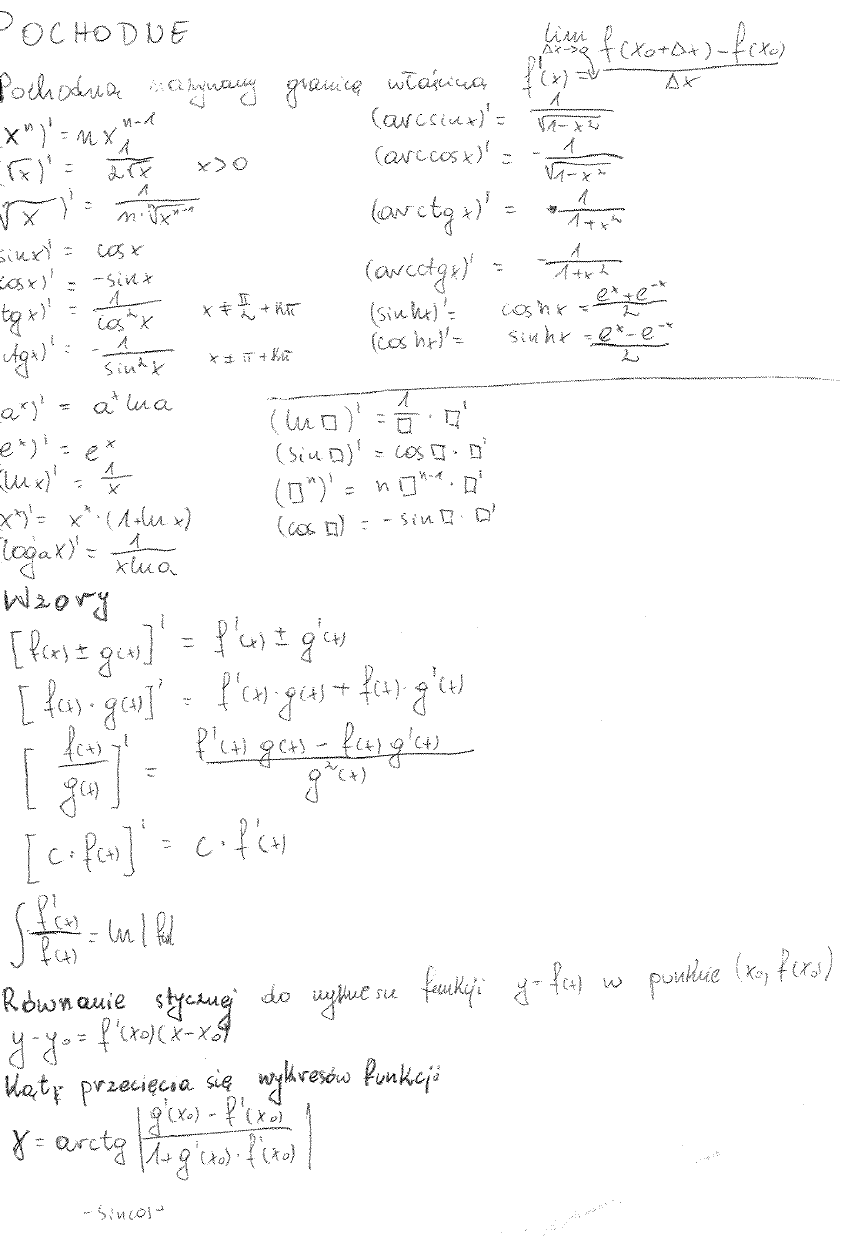 POCHODNE
Pochodną nazywamy granicę właściwą f'(x) = lim Δx→0 f(x₀+Δx) - f(x₀) / Δx
(xⁿ)' = n xⁿ⁻¹
(√x)' = 1/(2√x) x>0
ⁿ√x )' = 1/(n·ⁿ√xⁿ⁻¹)
sinx)' = cosx
cosx)' = -sinx
tgx)' = 1/cos²x x ≠ π/2 + kπ
ctgx)' = -1/sin²x x ≠ π + kπ
aˣ)' = aˣ ln a
eˣ)' = eˣ
(lnx)' = 1/x
xˣ)' = xˣ·(1+ln x)
(logₐx)' = 1/(x ln a)
(arcsinx)' = 1/√1-x²
(arccosx)' = -1/√1-x²
(arctgx)' = 1/(1+x²)
(arcctgx)' = -1/(1+x²)
(sinhx)' = coshx = (eˣ+e⁻ˣ)/2
(coshx)' = sinhx = (eˣ-e⁻ˣ)/2
(ln □)' = 1/□ · □'
(sin □)' = cos □ · □'
(□ⁿ)' = n □ⁿ⁻¹ · □'
(cos □) = -sin □ · □'
Wzory
[f(x) ± g(x)]' = f'(x) ± g'(x)
[f(x) · g(x)]' = f'(x)·g(x) + f(x)·g'(x)
[f(x)/g(x)]' = (f'(x) g(x) - f(x) g'(x))/g²(x)
[c · f(x)]' = c · f'(x)
∫ f'(x)/f(x) = ln | f(x)|
Równanie stycznej do wykresu funkcji y = f(x) w punkcie (x₀, f(x₀))
y - y₀ = f'(x₀)(x-x₀)
Kąty przecięcia się wykresów funkcji
γ = arctg | (g'(x₀) - f'(x₀))/(1+g'(x₀)·f'(x₀)) |
-sincos